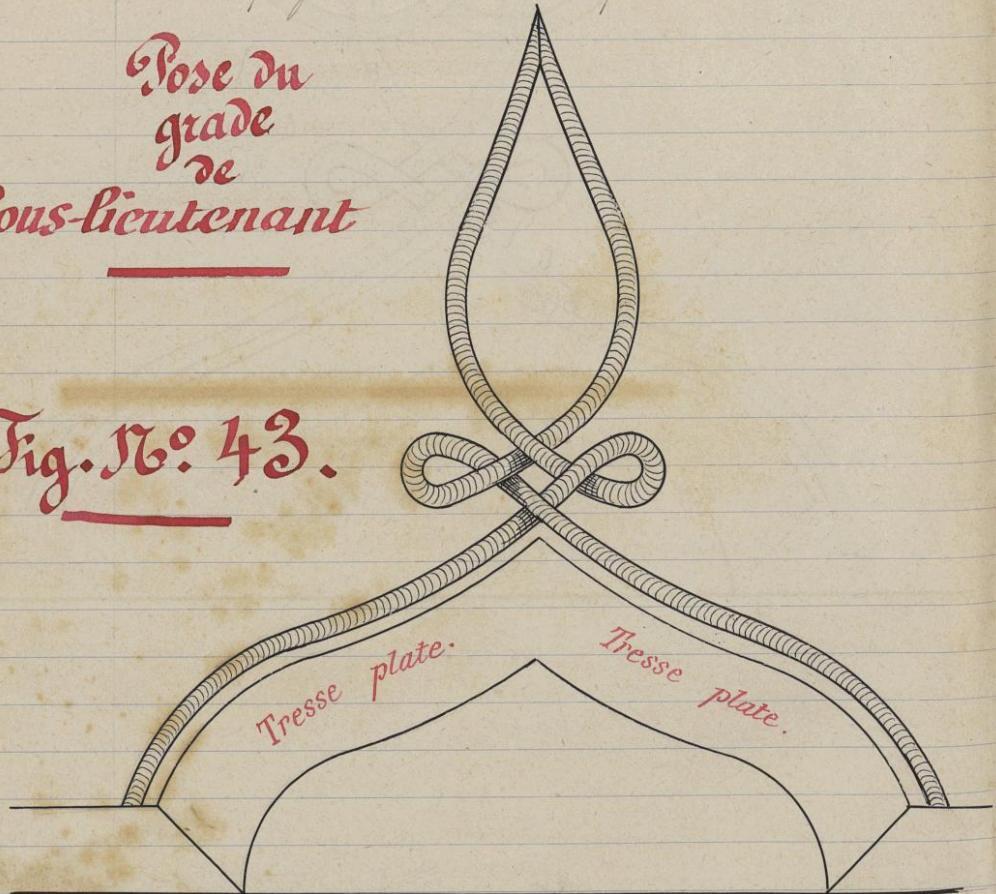 Pose du
grade
de
Sous-lieutenant
Fig. Nº 43.
Tresse plate.
Tresse plate.